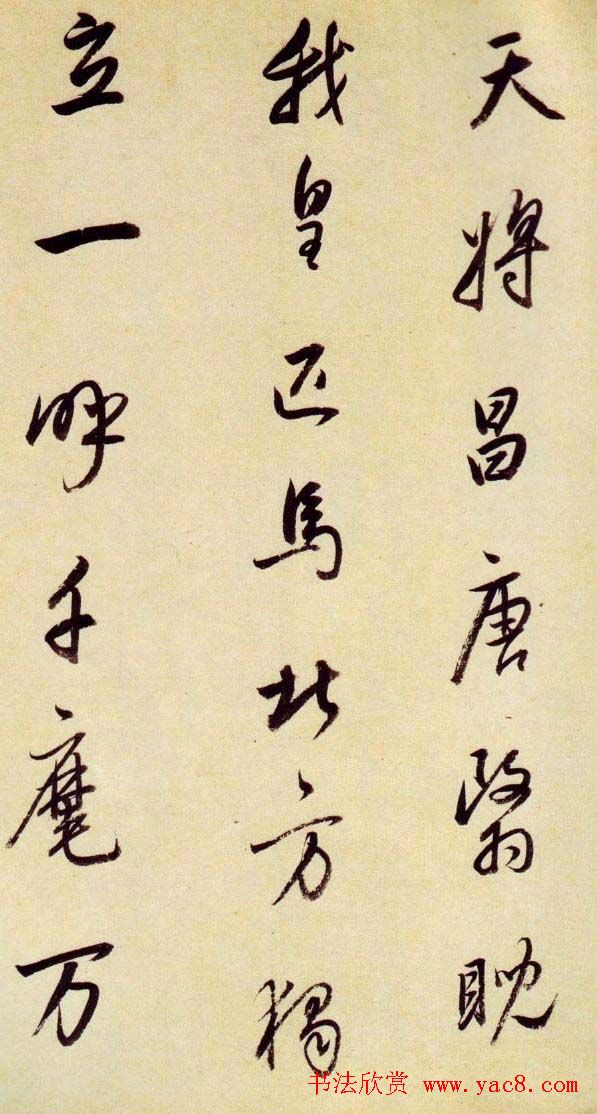 天將昌唐繄睨
我皇匹馬北方獨
立一呼千麾万
书法欣赏 www.yac8.com